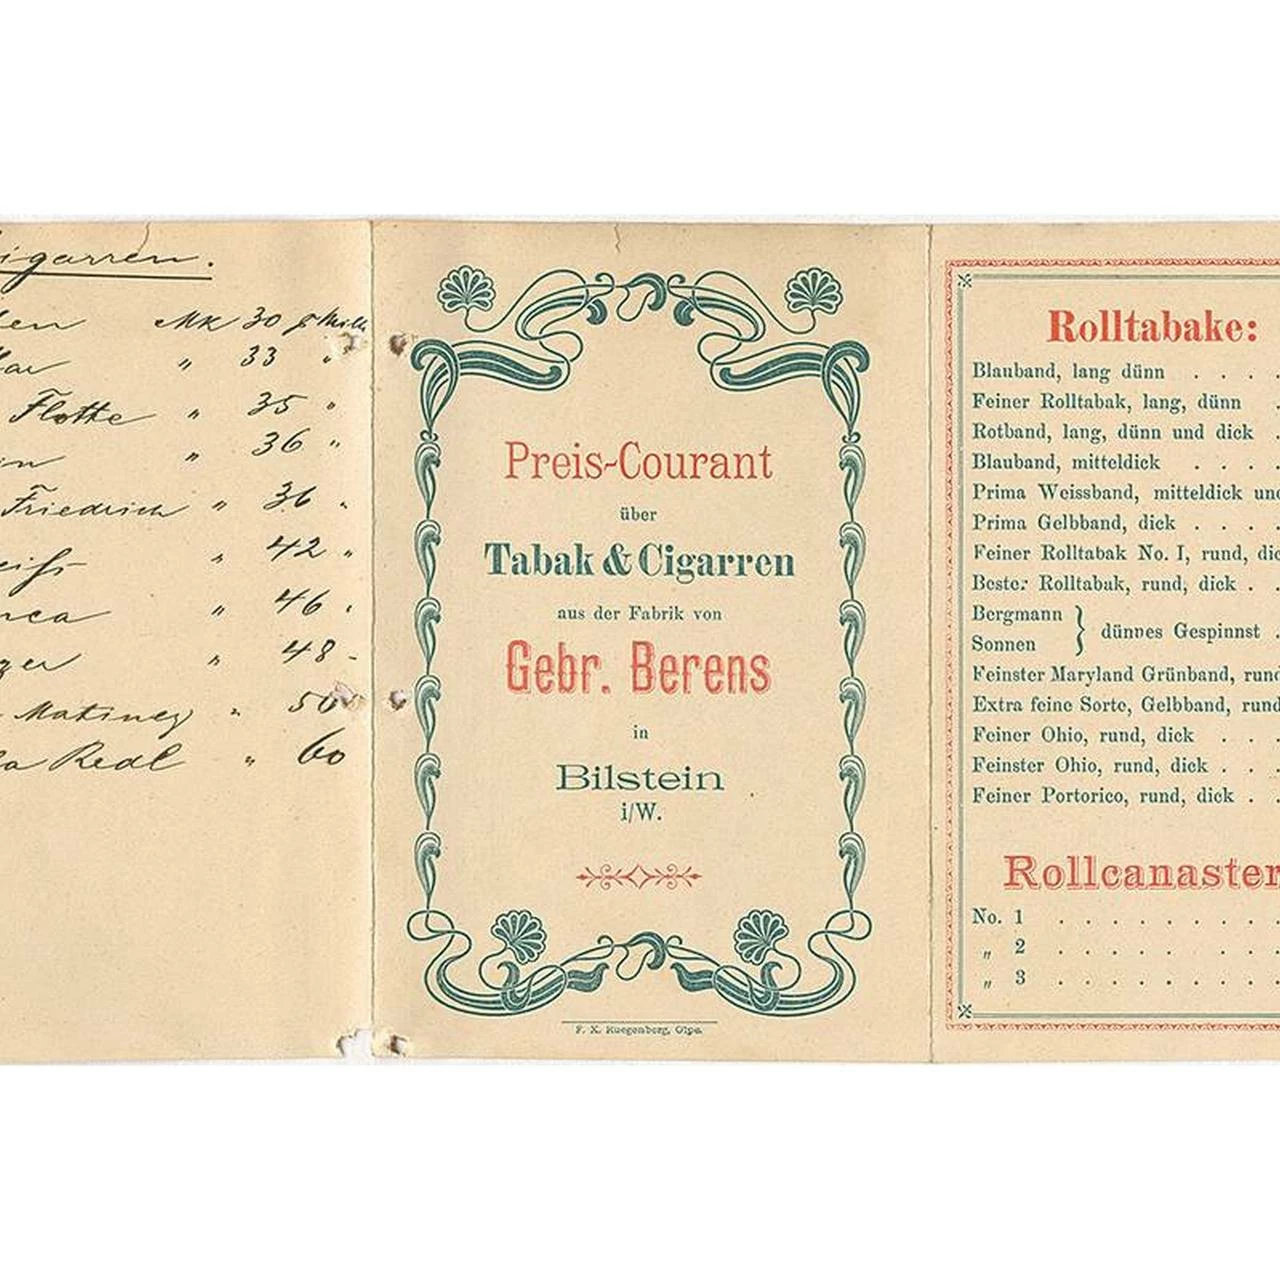 igarren.
en Mk 30 p Mille
ar " 33 "
Flotte " 35 "
in " 36 "
Friedrich " 36 "
eiß " 42 "
nca " 46 "
ger " 48 "
Matiney " 50
a Redl " 60
Preis-Courant
über
Tabak & Cigarren
aus der Fabrik von
Gebr. Berens
in
Bilstein
i/W.
F. X. Ruegenberg, Olpe.
Rolltabake:
Blauband, lang dünn . . . .
Feiner Rolltabak, lang, dünn .
Rotband, lang, dünn und dick .
Blauband, mitteldick . . . .
Prima Weissband, mitteldick und
Prima Gelbband, dick . . . .
Feiner Rolltabak No. I, rund, dic
Bester Rolltabak, rund, dick . .
Bergmann
Sonnen } dünnes Gespinnst .
Feinster Maryland Grünband, rund
Extra feine Sorte, Gelbband, rund
Feiner Ohio, rund, dick . . .
Feinster Ohio, rund, dick . . .
Feiner Portorico, rund, dick . .
Rollcanaster
No. 1 . . . . . . . . .
" 2 . . . . . . . . .
" 3 . . . . . . . . .